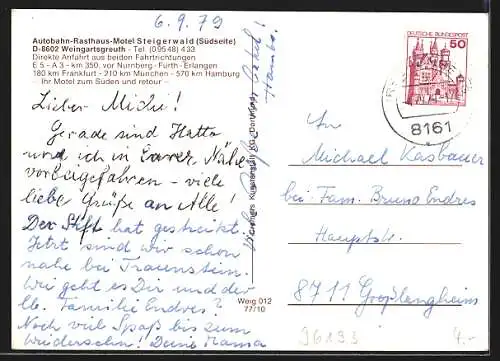 6.9.79
Autobahn-Rasthaus-Motel Steigerwald (Südseite)
D-8602 Weingartsgreuth - Tel. (09548) 433
Direkte Anfahrt aus beiden Fahrtrichtungen
E 5 - A 3 - km 350, vor Nürnberg - Fürth - Erlangen
180 km Frankfurt - 210 km München - 570 km Hamburg
Ihr Motel zum Süden und retour -
Lieber Michi!
Gerade sind Hatto
und ich in Eurer Nähe
vorbeigefahren - viele
liebe Grüße an Alle!
Der Stift hat gestreikt.
Jetzt sind wir schon
nahe bei Traunstein.
Wie geht es Dir und der
lb. Familie Endres?
Noch viel Spaß bis zum
Wiedersehn! Deine Mama
Werg 012
77/10
DEUTSCHE BUNDESPOST
50
8161
An
Michael Kasbauer
bei Fam. Bruno Endres
Hauptstr.
8711 Großlangheim
96193
4.-